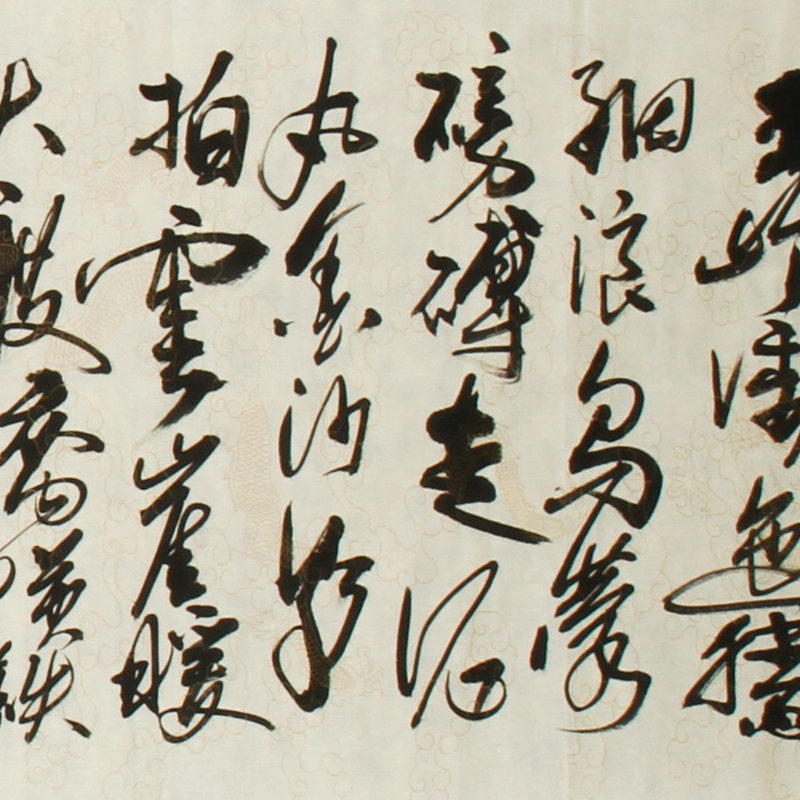 五岭逶迤腾
細浪烏蒙
磅礴走泥
丸金沙水
拍雲崖暖
大渡橋横铁